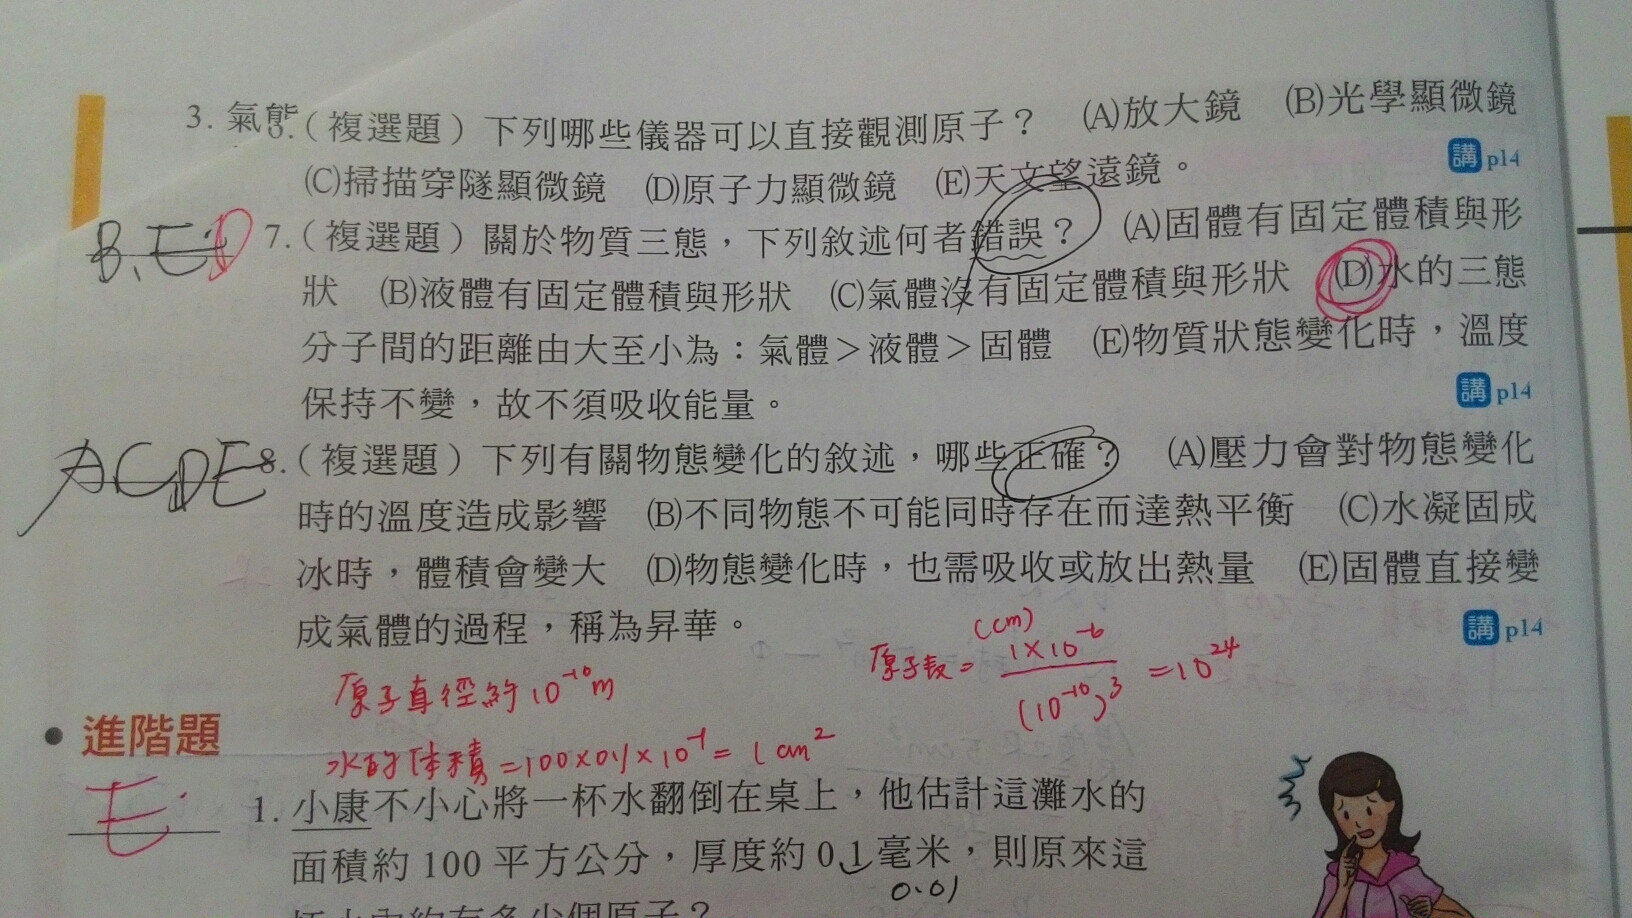 3. 氣態
.（複選題）下列哪些儀器可以直接觀測原子？ (A)放大鏡 (B)光學顯微鏡
(C)掃描穿隧顯微鏡 (D)原子力顯微鏡 (E)天文望遠鏡。 講 p14
B、E、D 7.（複選題）關於物質三態，下列敘述何者錯誤？ (A)固體有固定體積與形
狀 (B)液體有固定體積與形狀 (C)氣體沒有固定體積與形狀 (D)水的三態
分子間的距離由大至小為：氣體＞液體＞固體 (E)物質狀態變化時，溫度
保持不變，故不須吸收能量。 講 p14
ACDE 8.（複選題）下列有關物態變化的敘述，哪些正確？ (A)壓力會對物態變化
時的溫度造成影響 (B)不同物態不可能同時存在而達熱平衡 (C)水凝固成
冰時，體積會變大 (D)物態變化時，也需吸收或放出熱量 (E)固體直接變
成氣體的過程，稱為昇華。 講 p14
(cm)
原子数 = 1×10⁻⁶ / (10⁻¹⁰)³ = 10²⁴
原子直徑約10⁻¹⁰m
• 進階題
水的体積 =100×0.1×10⁻¹= 1 cm²
E 1. 小康不小心將一杯水翻倒在桌上，他估計這灘水的
面積約 100 平方公分，厚度約 0.1 毫米，則原來這
0.01
杯水中約有多少個原子？